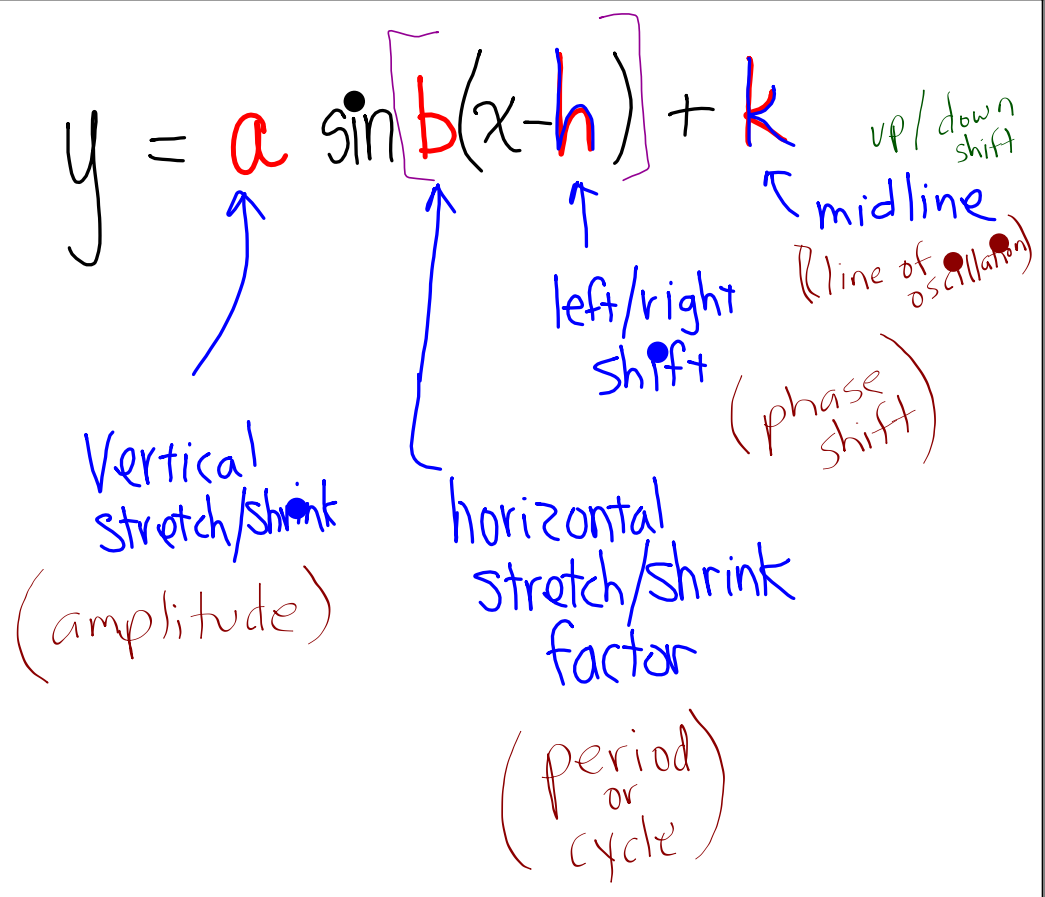 y = a sin[b(x-h)] + k
up/down
shift
midline
(line of
oscillation)
left/right
shift
(phase
shift)
Vertical
stretch/shrink
(amplitude)
horizontal
stretch/shrink
factor
(period
or
cycle)